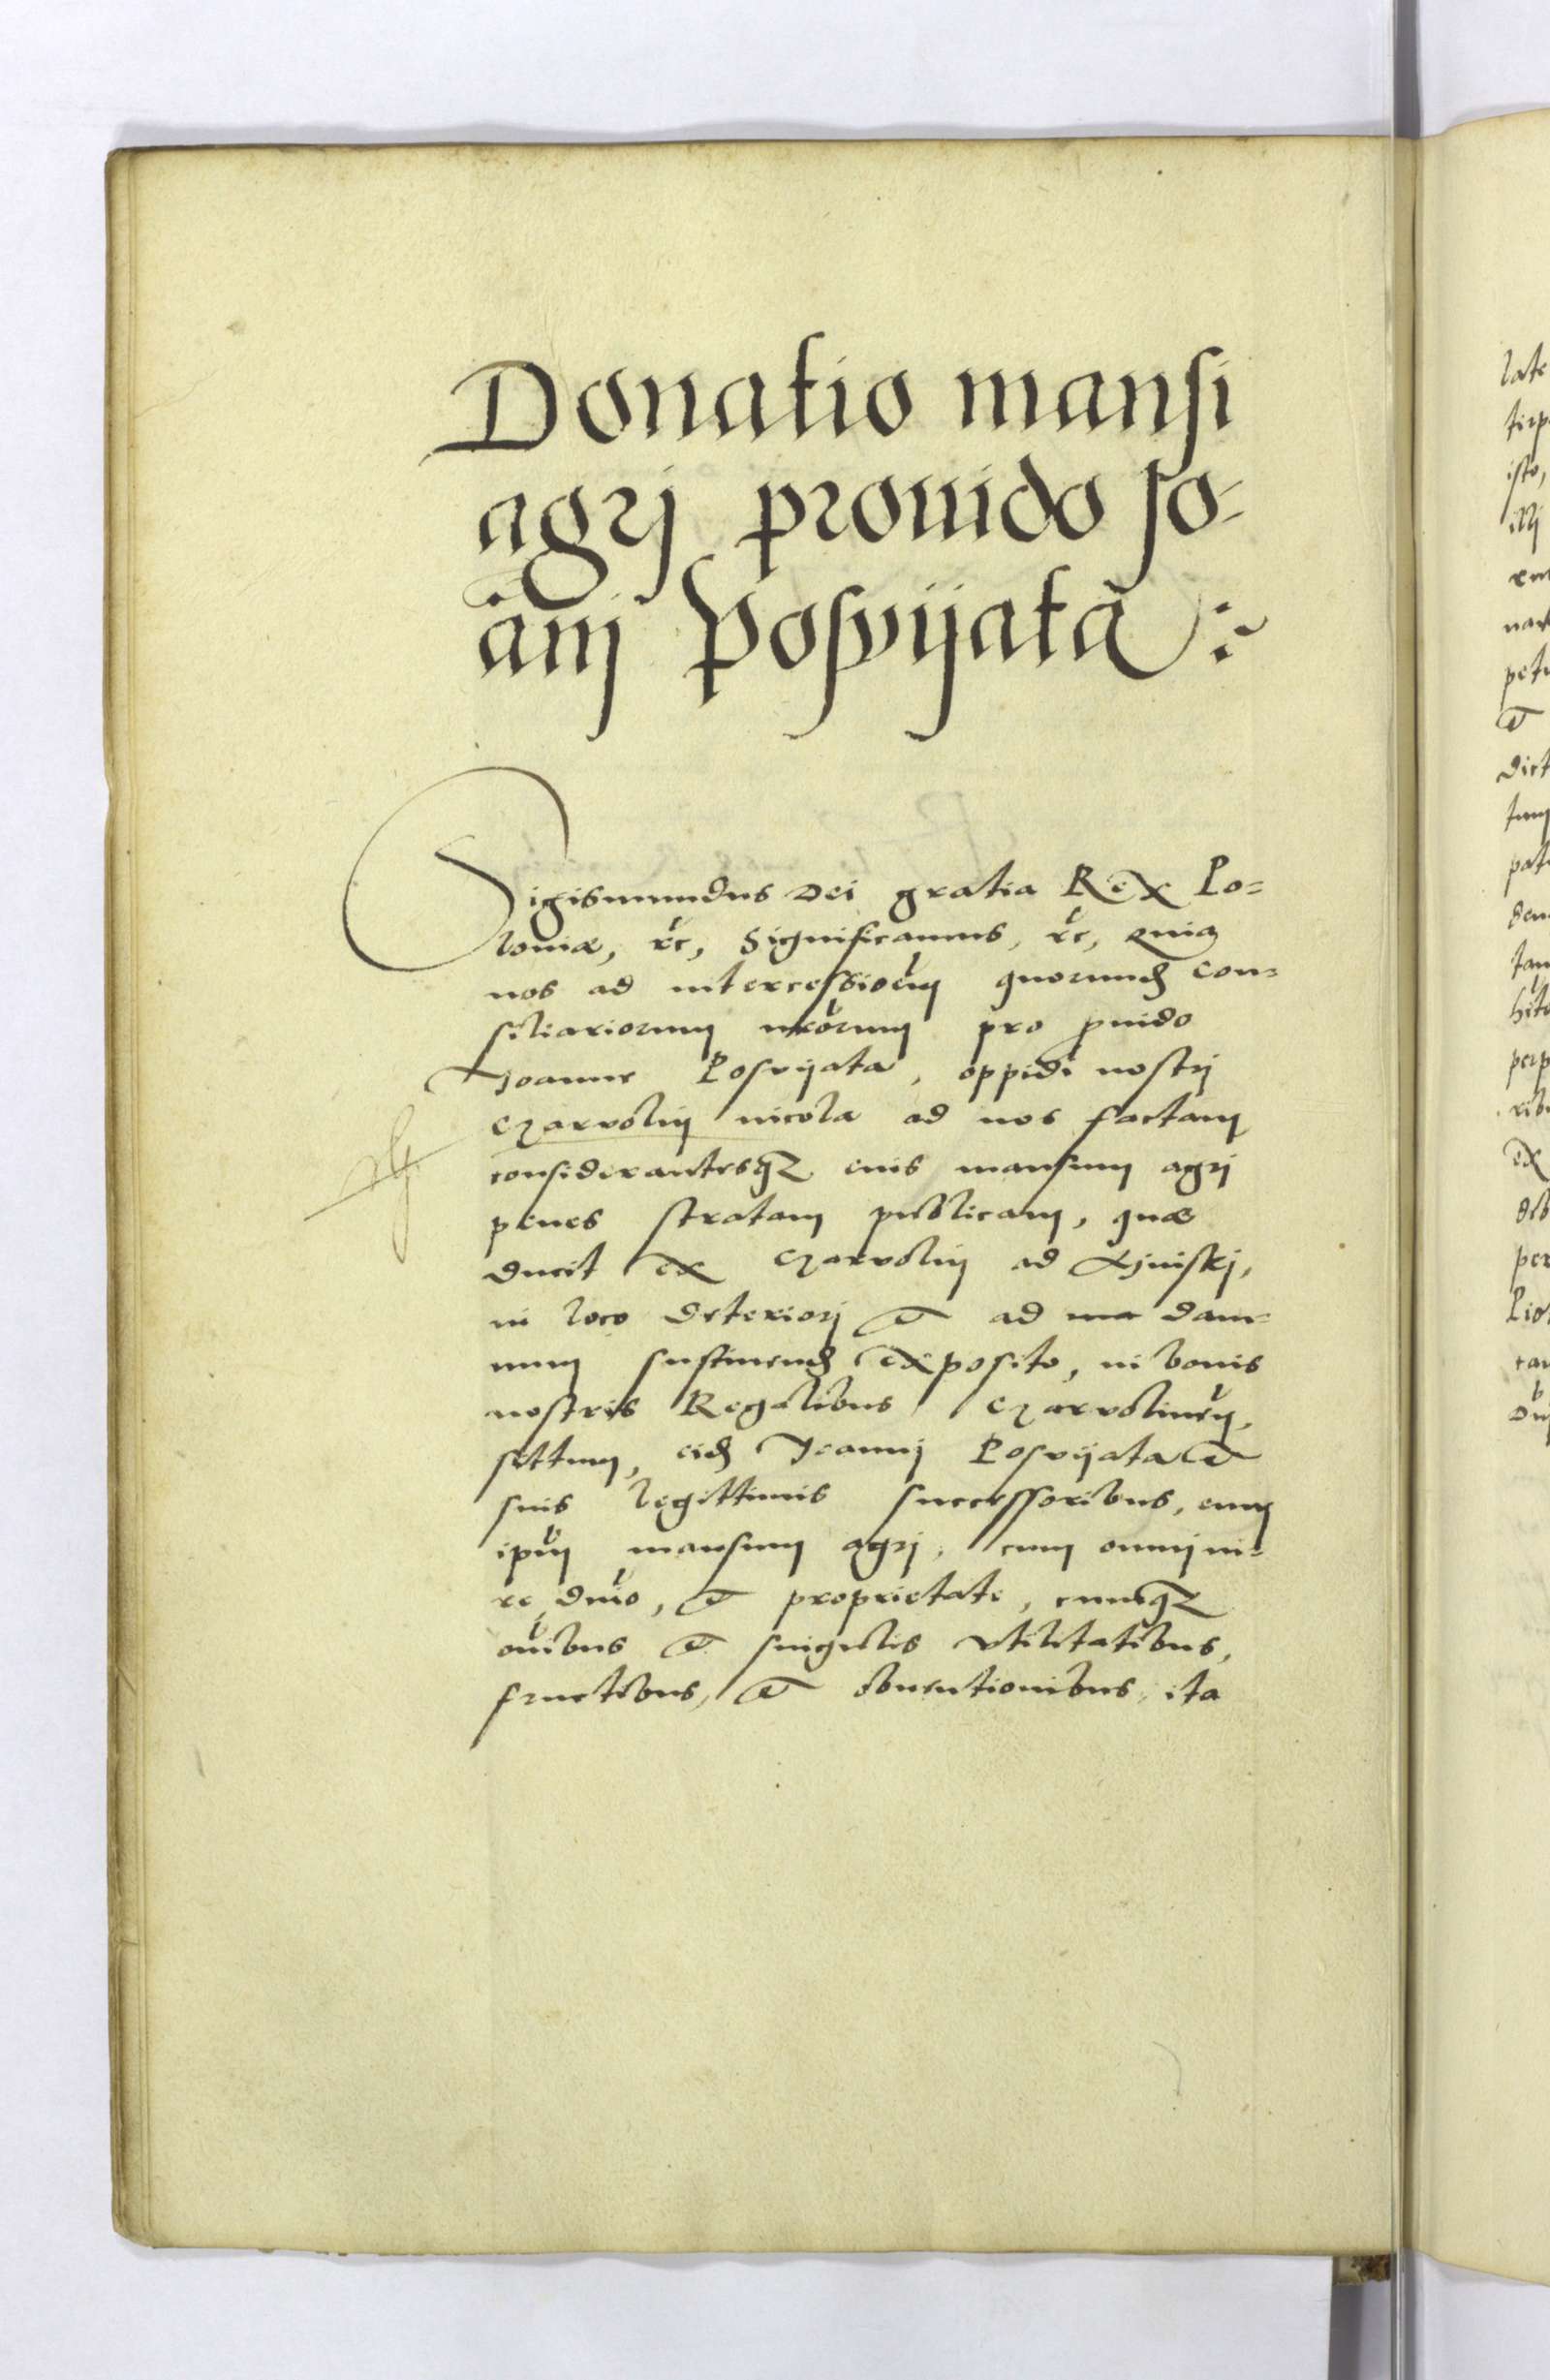 Donatio mansi
agrj prouido Jo-
anj Posvijata :~
Sigismundus Dei gratia Rex Po=
loniæ, &c, Significamus, &c, Quia
nos ad intercessionẽm quorund con=
siliariorum nrõrum pro puido
Joanne Posvijata, oppidi nostrj
Czarvolin incola ad nos factam
considerantesq; eius mansum agrj
penes stratam publicam, quæ
ducit ex Czarvolin ad
in loco deteriorj et ad dam=
num sustinend exposito, in bonis
nostris Regalibus Czarvolineñ,
sittum, eid Joannj Posvijata et
suis legittimis successoribus, eum
ipũm mansum agrj, cum omnj iu=
re, dnĩo, et proprietate, cumq;
oĩbus et singulis vtilitatibus,
fructibus, et obuentionibus, ita
late
tirp
isto,
illj
petu
et
dict
tum
pat
dem
tam
perp
ex
per